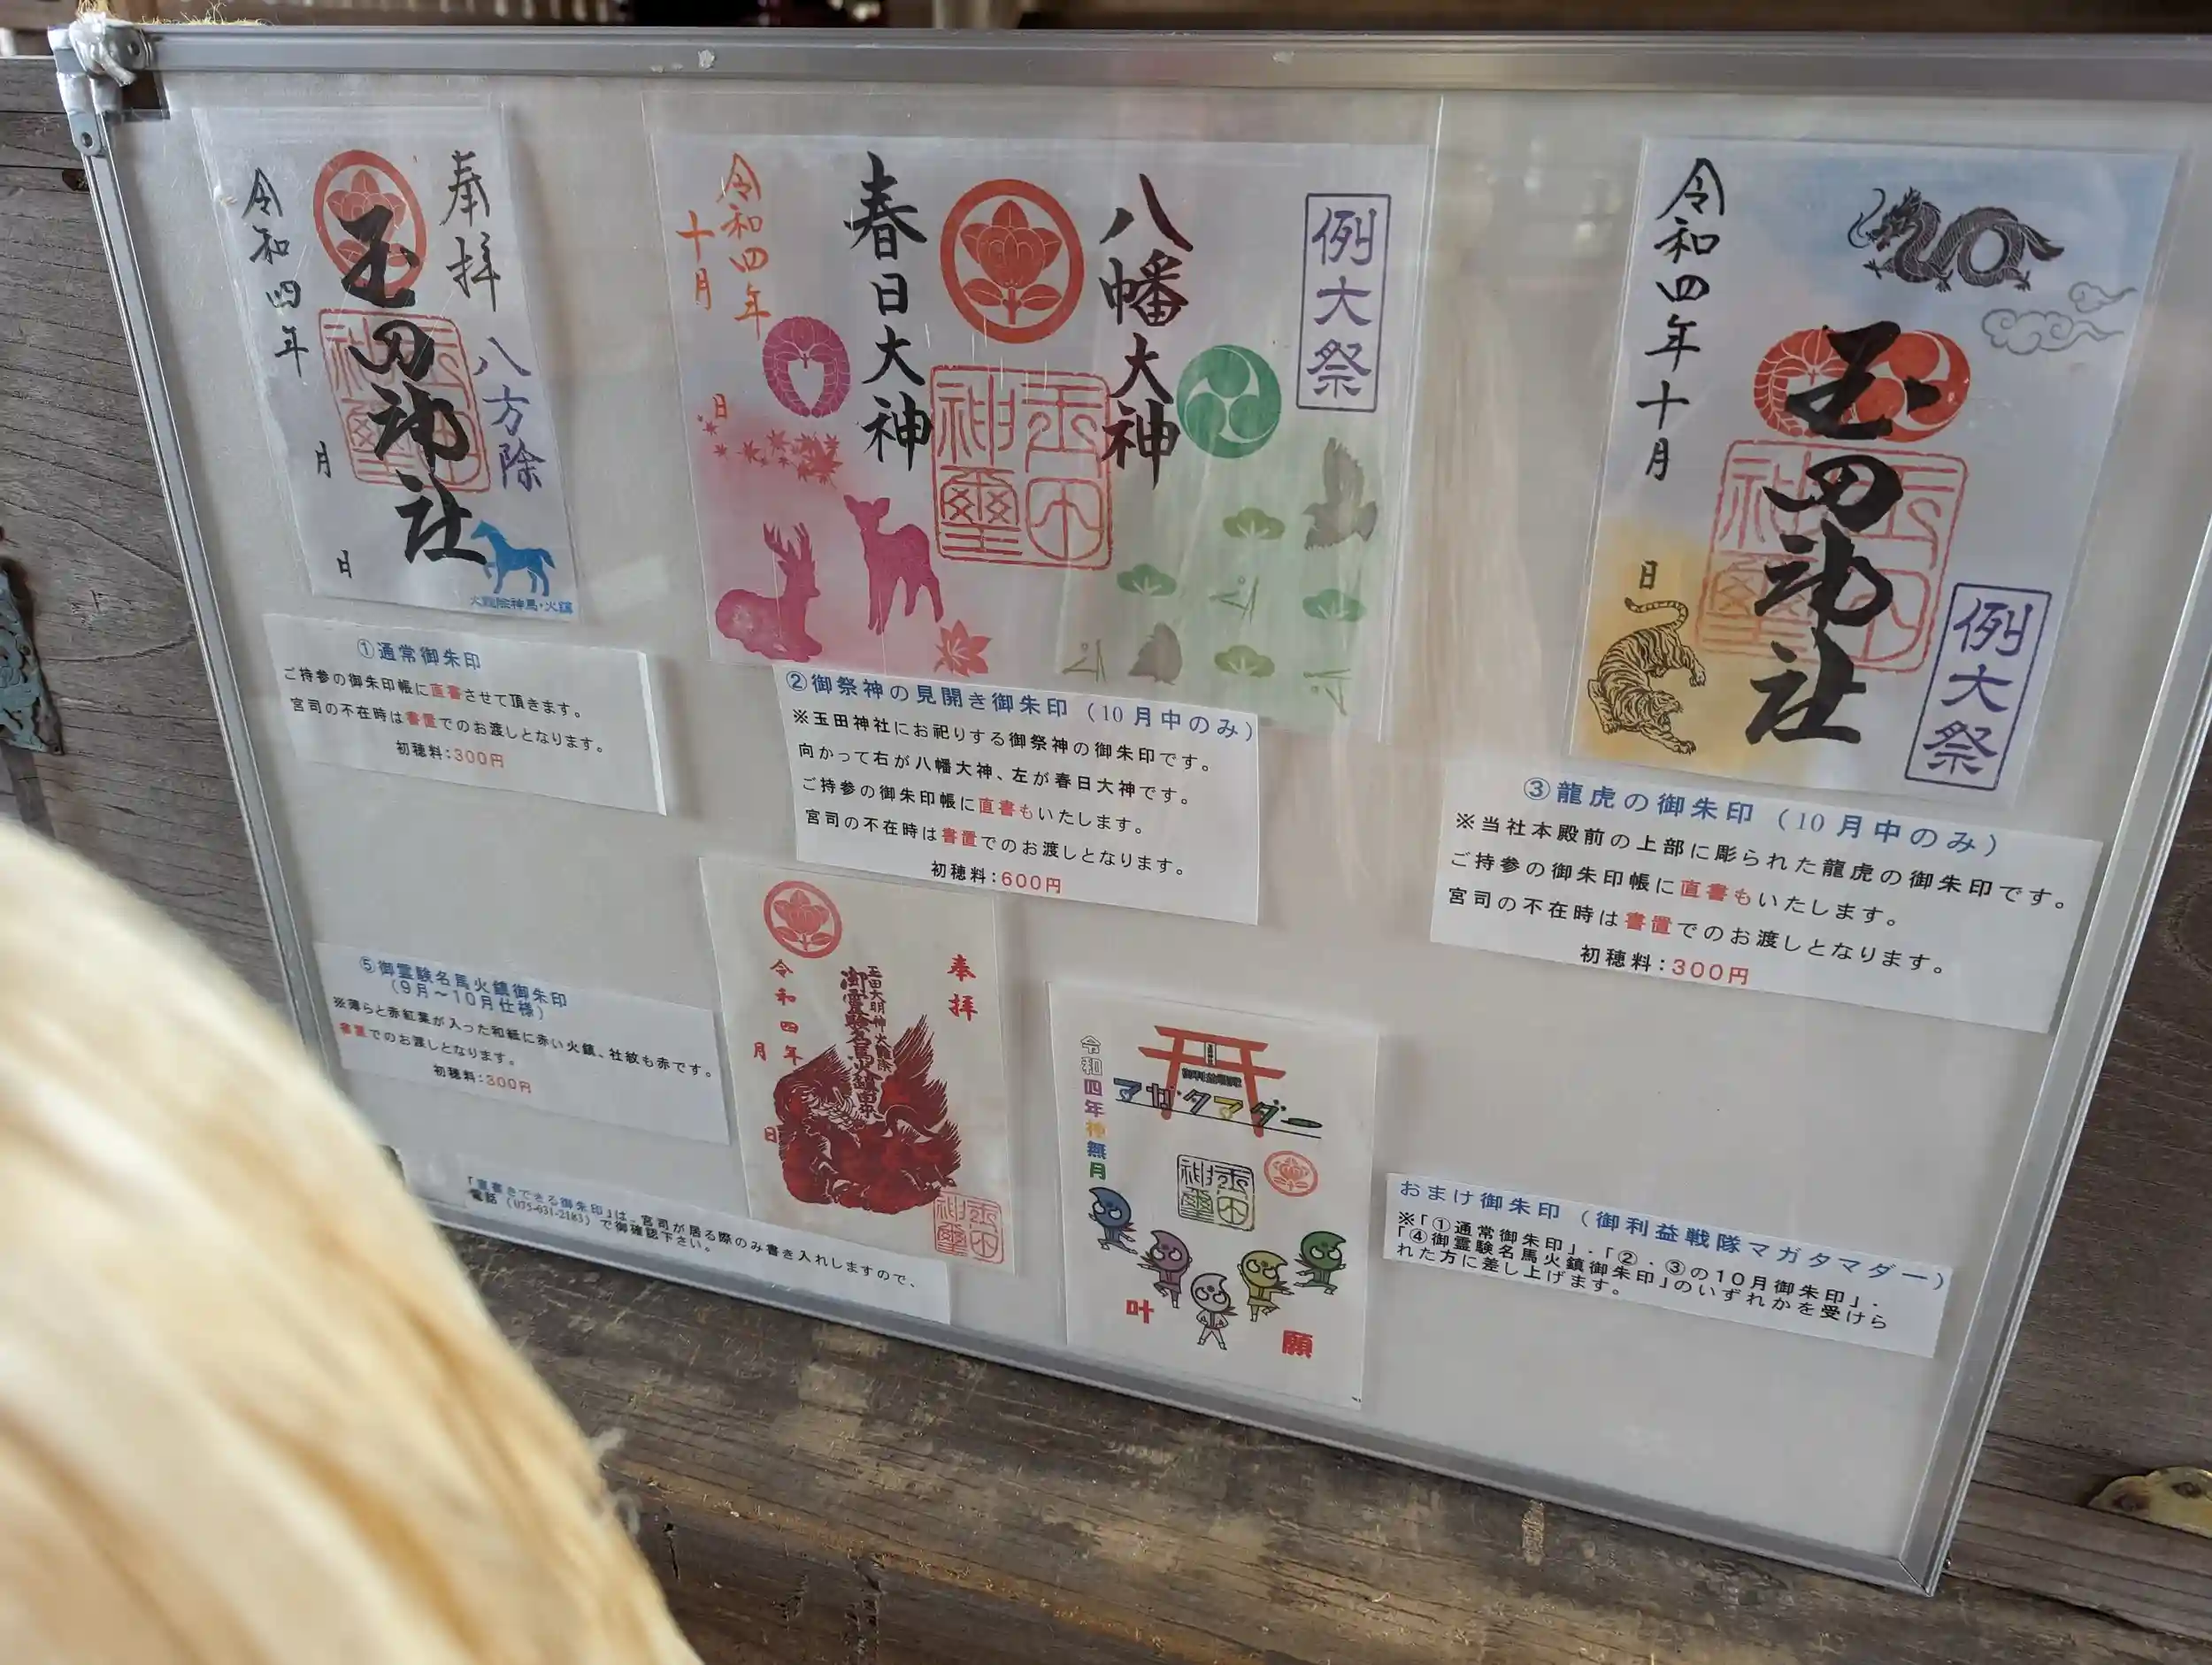 奉拝
八方除
玉田神社
令和四年
月
日
火難除神馬・火鎮
①通常御朱印
ご持参の御朱印帳に直書させて頂きます。
宮司の不在時は書置でのお渡しとなります。
初穂料：300円
例大祭
八幡大神
春日大神
令和四年
十月
日
玉田神璽
②御祭神の見開き御朱印（10月中のみ）
※玉田神社にお祀りする御祭神の御朱印です。
向かって右が八幡大神、左が春日大神です。
ご持参の御朱印帳に直書もいたします。
宮司の不在時は書置でのお渡しとなります。
初穂料：600円
玉田神社
例大祭
令和四年十月
日
③龍虎の御朱印（10月中のみ）
※当社本殿前の上部に彫られた龍虎の御朱印です。
ご持参の御朱印帳に直書もいたします。
宮司の不在時は書置でのお渡しとなります。
初穂料：300円
⑤御霊験名馬火鎮御朱印
（9月～10月仕様）
※薄らと赤紅葉が入った和紙に赤い火鎮、社紋も赤です。
書置でのお渡しとなります。
初穂料：300円
奉拝
玉田大明神火難除
御霊験名馬火鎮
令和四年
月
日
玉田神璽
「直書きできる御朱印」は、宮司が居る際のみ書き入れしますので、
電話（075-631-2183）で御確認下さい。
マガタマダー
令和四年神無月
玉田神璽
叶
願
おまけ御朱印（御利益戦隊マガタマダー）
※「①通常御朱印」、「②、③の10月御朱印」、
「④御霊験名馬火鎮御朱印」のいずれかを受けら
れた方に差し上げます。